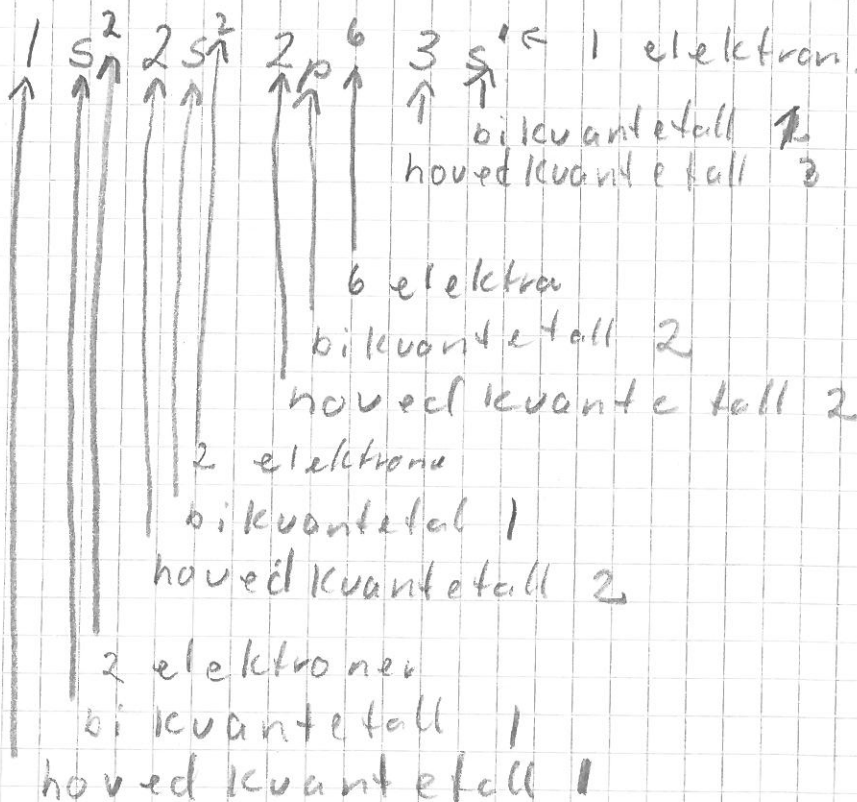 1 s² 2 s² 2 p⁶ 3 s¹ ← 1 elektron.
bikvantetall 1
hovedkvantetall 3
6 elektro
bikvantetall 2
hovedkvantetall 2
2 elektrone
bikvantetal 1
hovedkvantetall 2
2 elektroner
bikvantetall 1
hovedkvantetall 1